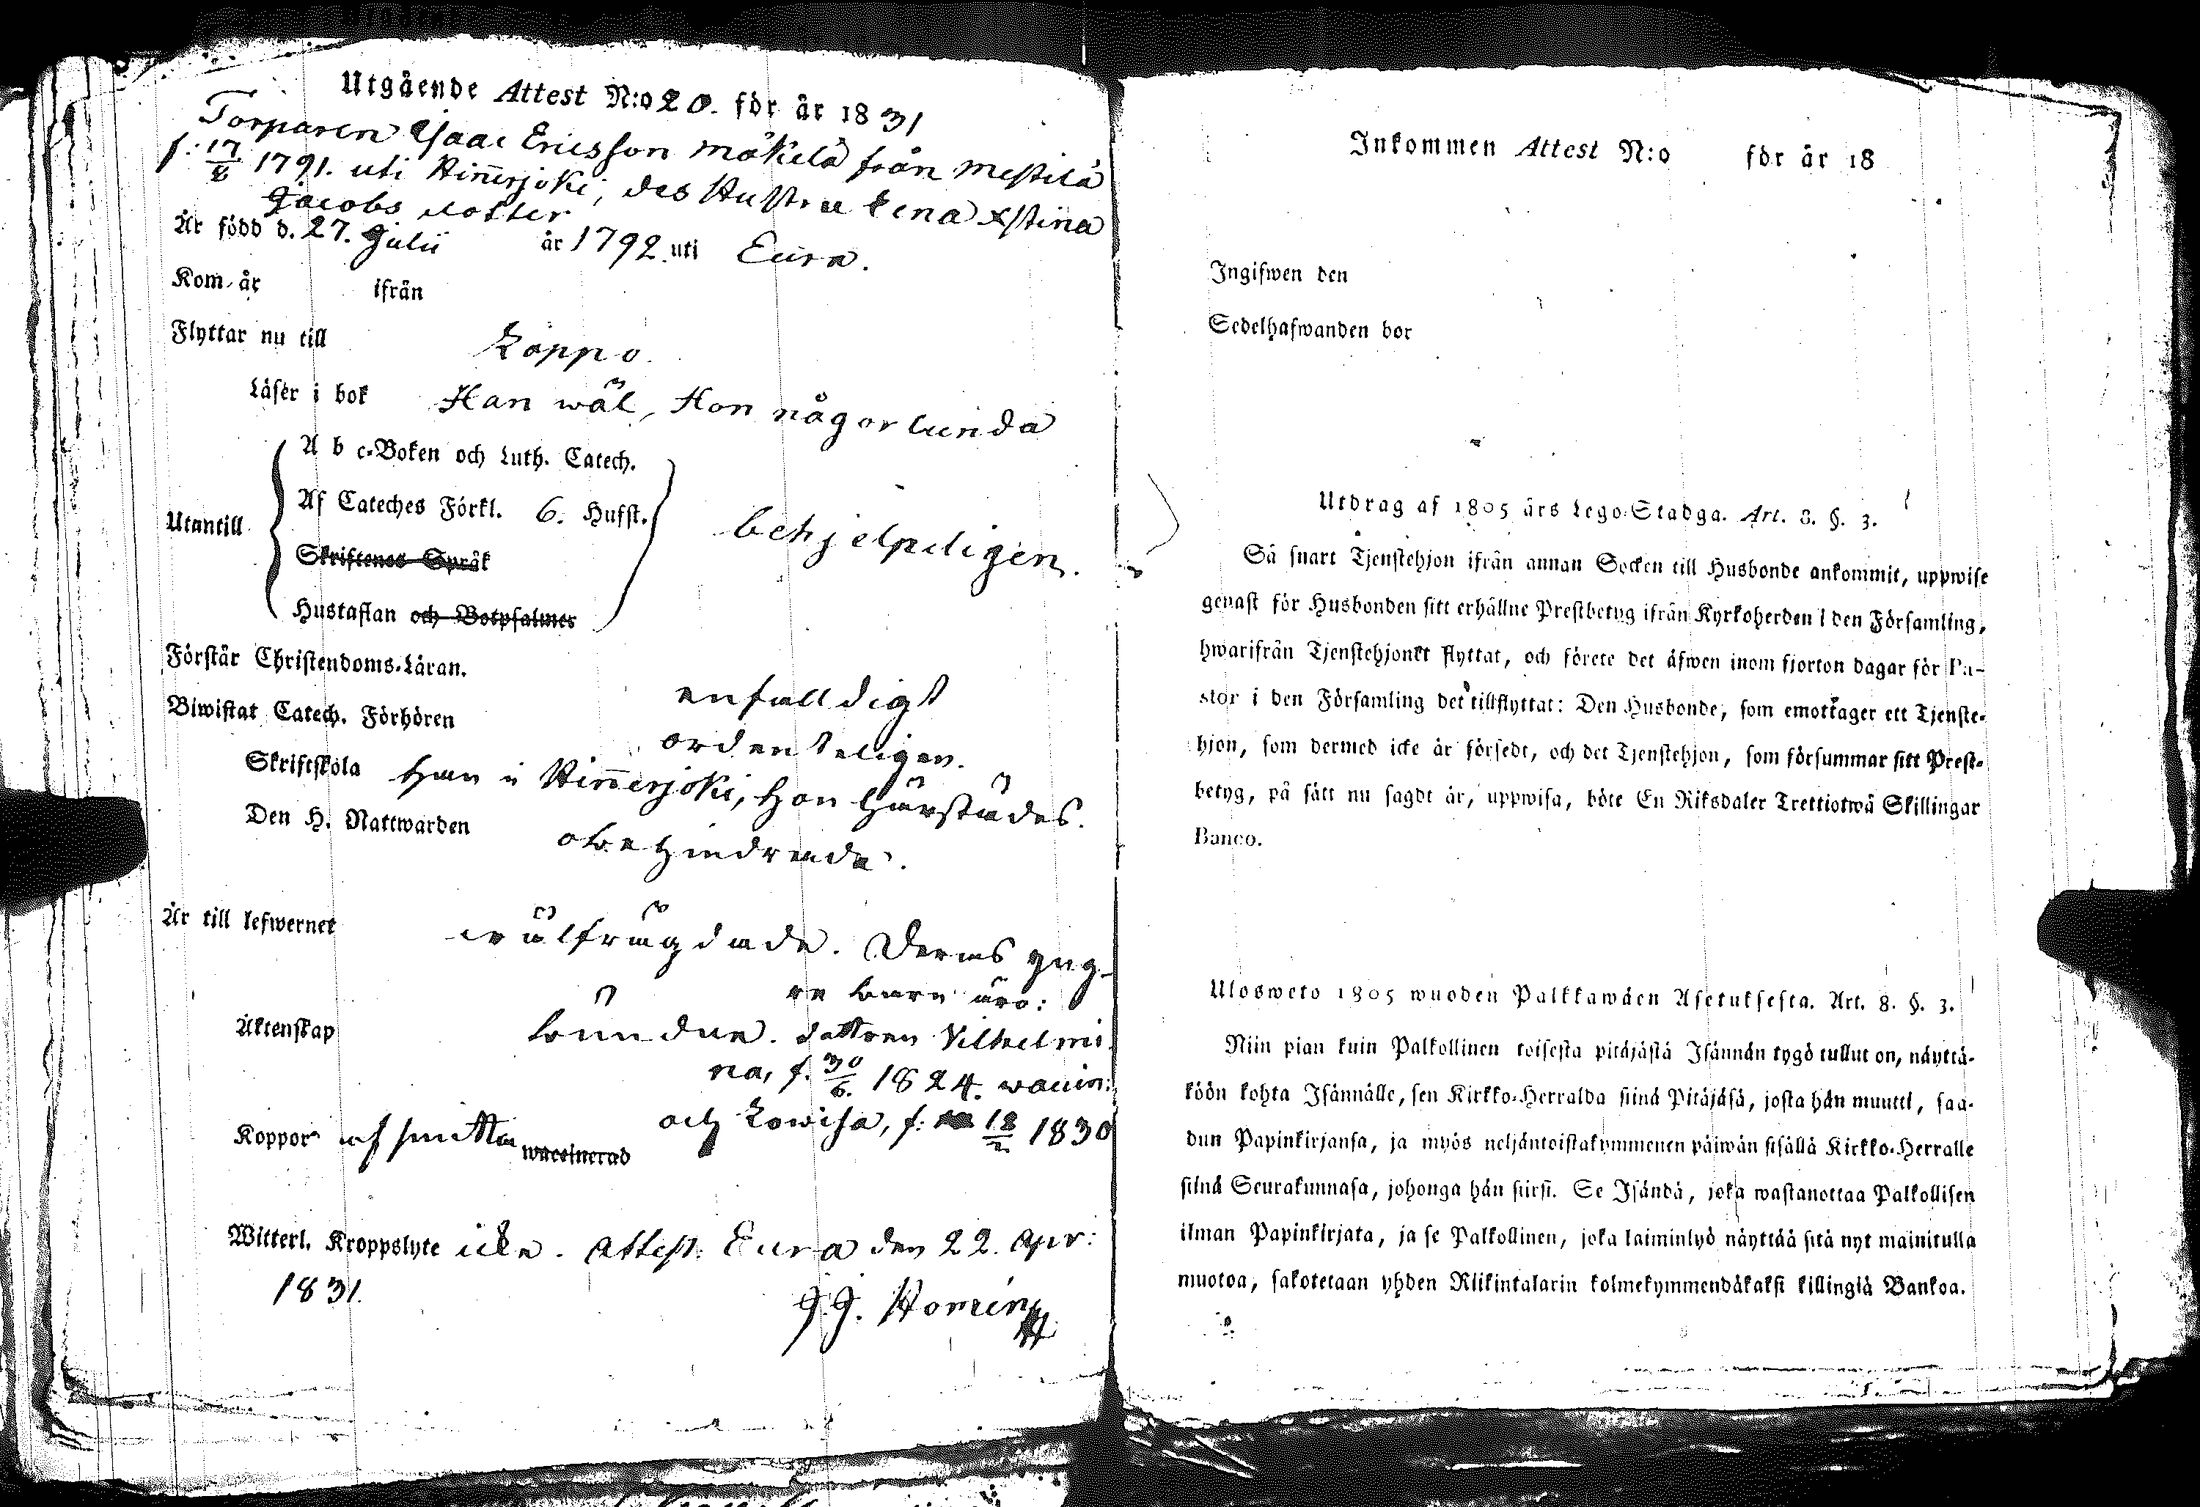 Utgående Attest N:o 20. för år 1831
Torparen Isaac Ericsson Mäkelä från Mestilä
f: 17/8 1791. uti Hinnerjoki, des Hustru Lena Xstina
Jacobs dotter
Är född d. 27. Julii år 1792 uti Eura.
Kom år ifrån
Flyttar nu till Loppo.
Läser i bok Han wäl, Hon någorlunda
A b c-Boken och Luth. Catech.
Af Cateches Förkl. 6. Hufst.
Utantill behjelpeligen.
Skriftenes Språk
Hustaflan och Botpsalmer
Förstår Christendoms-Läran. enfalldigt
Biwistat Catech. Förhören ordenteligen.
Skriftskola han i Hinnerjoki, hon härstädes.
Den H. Nattwarden obehindrade.
Är till lefwernet wälfrägdade. Deras yng-
re barn äro:
Äktenskap bundne. dottren Vilhelmi-
na, f. 30/6. 1824. waccin:
och Lowisa, f: 18/2 1830
Koppor af smitta waccinerad
Witterl. Kroppslyte icke. Attest. Eura den 22. Apr:
1831.
Inkommen Attest N:o för år 18
Ingifwen den
Sedelhafwanden bor
Utdrag af 1805 års Lego-Stadga. Art. 8. §. 3.
Så snart Tjenstehjon ifrån annan Socken till Husbonde ankommit, uppwise
genast för Husbonden sitt erhållne Prestbetyg ifrån Kyrkoherden i den Församling,
hwarifrån Tjenstehjonet flyttat, och förete det äfwen inom fjorton dagar för Pa-
stor i den Församling det tillflyttat: Den Husbonde, som emottager ett Tjenste-
hjon, som dermed icke är försedt, och det Tjenstehjon, som försummar sitt Prest-
betyg, på sätt nu sagdt är, uppwisa, böte En Riksdaler Trettiotwå Skillingar
Banco.
Ulosweto 1805 wuoden Palkkawäen Asetuksesta. Art. 8. §. 3.
Niin pian kuin Palkollinen toisesta pitäjästä Isännän tygö tullut on, näyttä-
köön kohta Isännälle, sen Kirkko-Herralda siinä Pitäjäsä, josta hän muutti, saa-
dun Papinkirjansa, ja myös neljäntoistakymmenen päiwän sisällä Kirkko-Herralle
siinä Seurakunnasa, johonga hän siirsi. Se Isändä, joka wastanottaa Palkollisen
ilman Papinkirjata, ja se Palkollinen, joka laiminlyö näyttää sitä nyt mainitulla
muotoa, sakotetaan yhden Riikintalarin kolmekymmendäkaksi killingiä Bankoa.